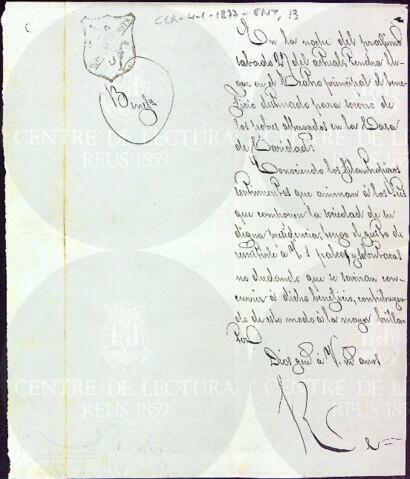 CLR-4-1-1877-ENT, 13
Benef.ª
En la noche del proximo
sabado 27 del actual tendra lu-
gar en el Teatro principal el bene-
ficio destinado para socorro de
los pobres albergados en la Casa
de Caridad.
Conociendo los filantropicos
sentimientos que animan a los Sres
que componen la sociedad de su
digna presidencia, tengo el gusto de
remitirle á V. 1 palco y butacas
no dudando que se serviran con-
currir á dicho beneficio, contribuyen-
do de este modo á la mayor brillan-
tez.
Dios gue á V. ms anos
CENTRE DE LECTURA
REUS 1859
CENTRE DE LECTURA
REUS 1859